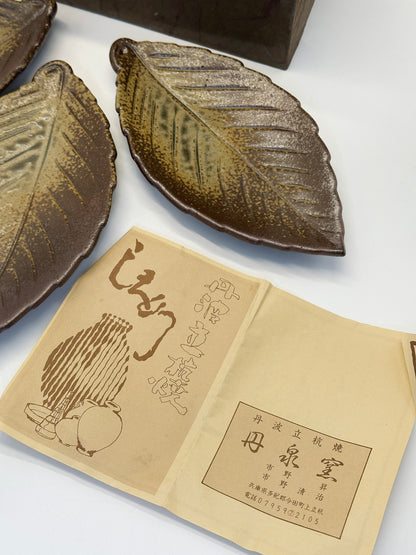 しおり
丹波立杭焼
丹波立杭焼
丹泉窯
市野 昇
市野清治
兵庫県多紀郡今田町上立杭
電話07959⑦2105